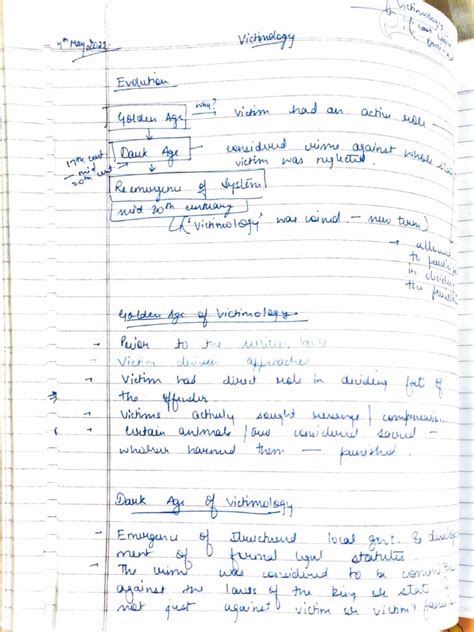 Victimology
7th May, 2022
Victimology
Evolution
Golden Age why? → victim had an active role
Dark Age → considered crime against whole
victim was neglected.
17th cent
— mid
20th cent
Re emergence of System
mid 20th century
('Victimology' was coined — new term)
→ allowed
to
in
the
Golden Age of Victimology
→ Prior to the written laws
- Victim driven approaches
→ Victim had direct role in deciding fate of
the offender.
→ Victims actively sought revenge / compensation
→ Certain animals / considered sacred —
whoever harmed them — punished.
Dark Age of Victimology
- Emergence of structured local govt. &
ment of formal legal statutes.
- The crime was considered to be
against the laws of the king or state
not just against victim or victim's